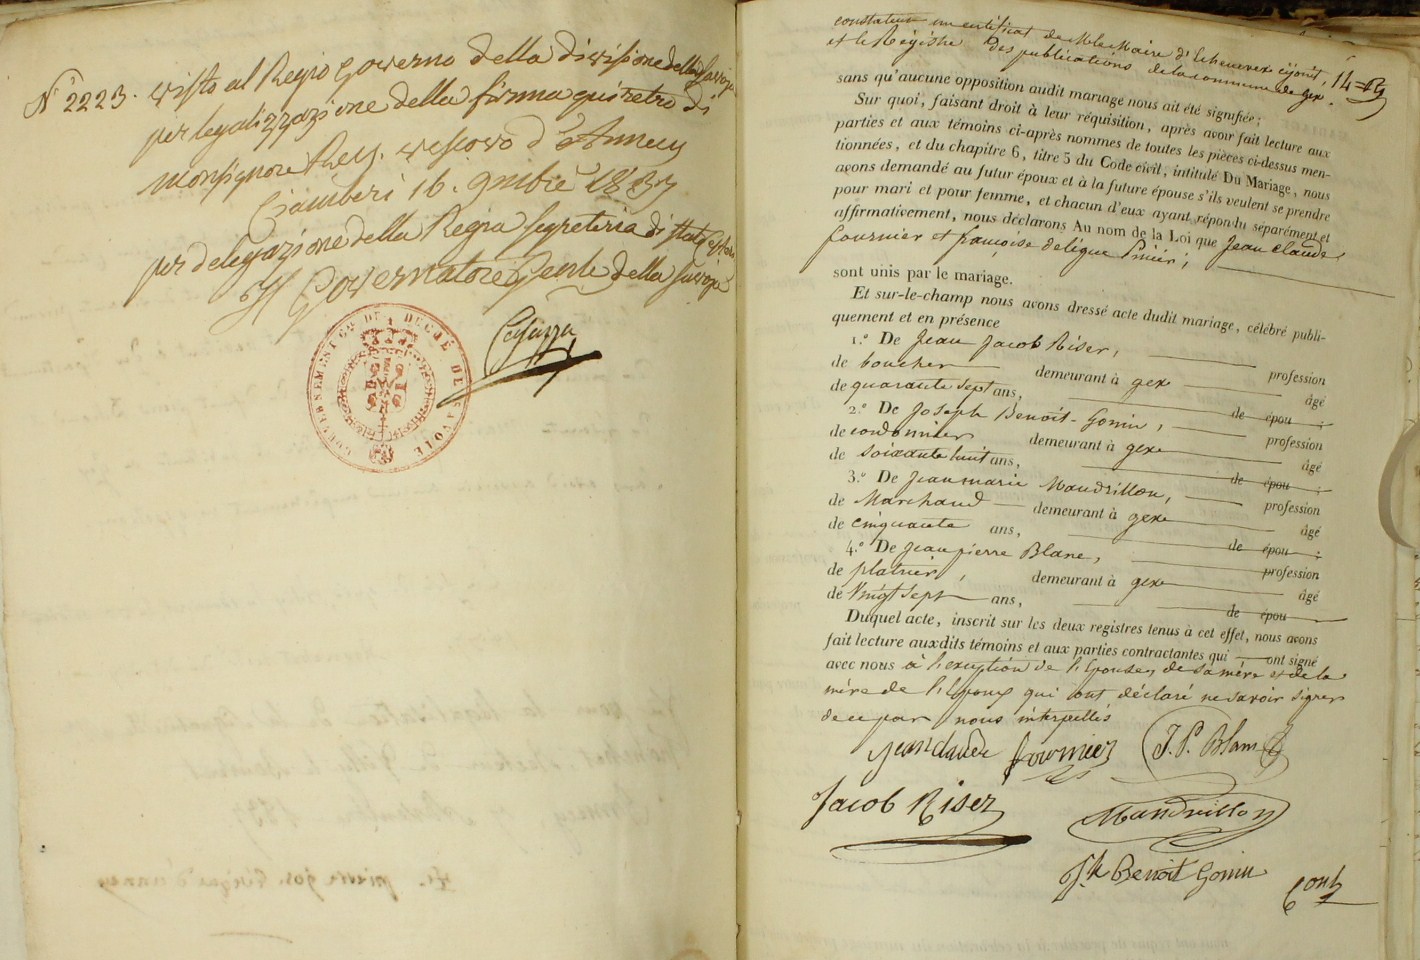 N° 2223. visto al Regio Governo della divisione della Savoja
per legalizzazione della firma qui retro di
Monsignore Rey. vescovo d'Annecy
Ciamberi 16. 9mbre 1837
per delegazione della Regia Segreteria di Stato Esteri
Il Governatore Genle della Savoja
GOUVERNEMENT DU DUCHÉ DE SAVOIE
constatum un certificat de Mr le Maire d'Echenevex cijoint,
et le Régistre Des publications de la commune de gex.
14
sans qu'aucune opposition audit mariage nous ait été signifiée;
Sur quoi, faisant droit à leur réquisition, après avoir fait lecture aux
parties et aux témoins ci-après nommes de toutes les pièces ci-dessus men-
tionnées, et du chapitre 6, titre 5 du Code civil, intitulé Du Mariage, nous
avons demandé au futur époux et à la future épouse s'ils veulent se prendre
pour mari et pour femme, et chacun d'eux ayant répondu séparément et
affirmativement, nous déclarons Au nom de la Loi que Jean Claude
fournier et françoise
sont unis par le mariage.
Et sur-le-champ nous avons dressé acte dudit mariage, célébré publi-
quement et en présence
1.° De Jean Jacob Riser, profession
de boucher demeurant à gex âgé
de quarante sept ans, de épou ;
2.° De Joseph Benoit-Gonin, profession
de cordonnier demeurant à gex âgé
de soixante huit ans, de épou ;
3.° De Jean marie Mandrillon, profession
de Marchand demeurant à gex âgé
de cinquante ans, de épou ;
4.° De Jean pierre Blanc, profession
de platrier, demeurant à gex âgé
de Vingt sept ans, de épou
Duquel acte, inscrit sur les deux registres tenus à cet effet, nous avons
fait lecture auxdits témoins et aux parties contractantes qui ont signé
avec nous à l'exception de l'Epouse, de sa mère et de la
mère de l'Epoux qui ont déclaré ne savoir signer
de ce par nous interpellés
jean claude fournier J. P. Blanc
Jacob Riser
Mandrillon
Jh Benoit Gonin